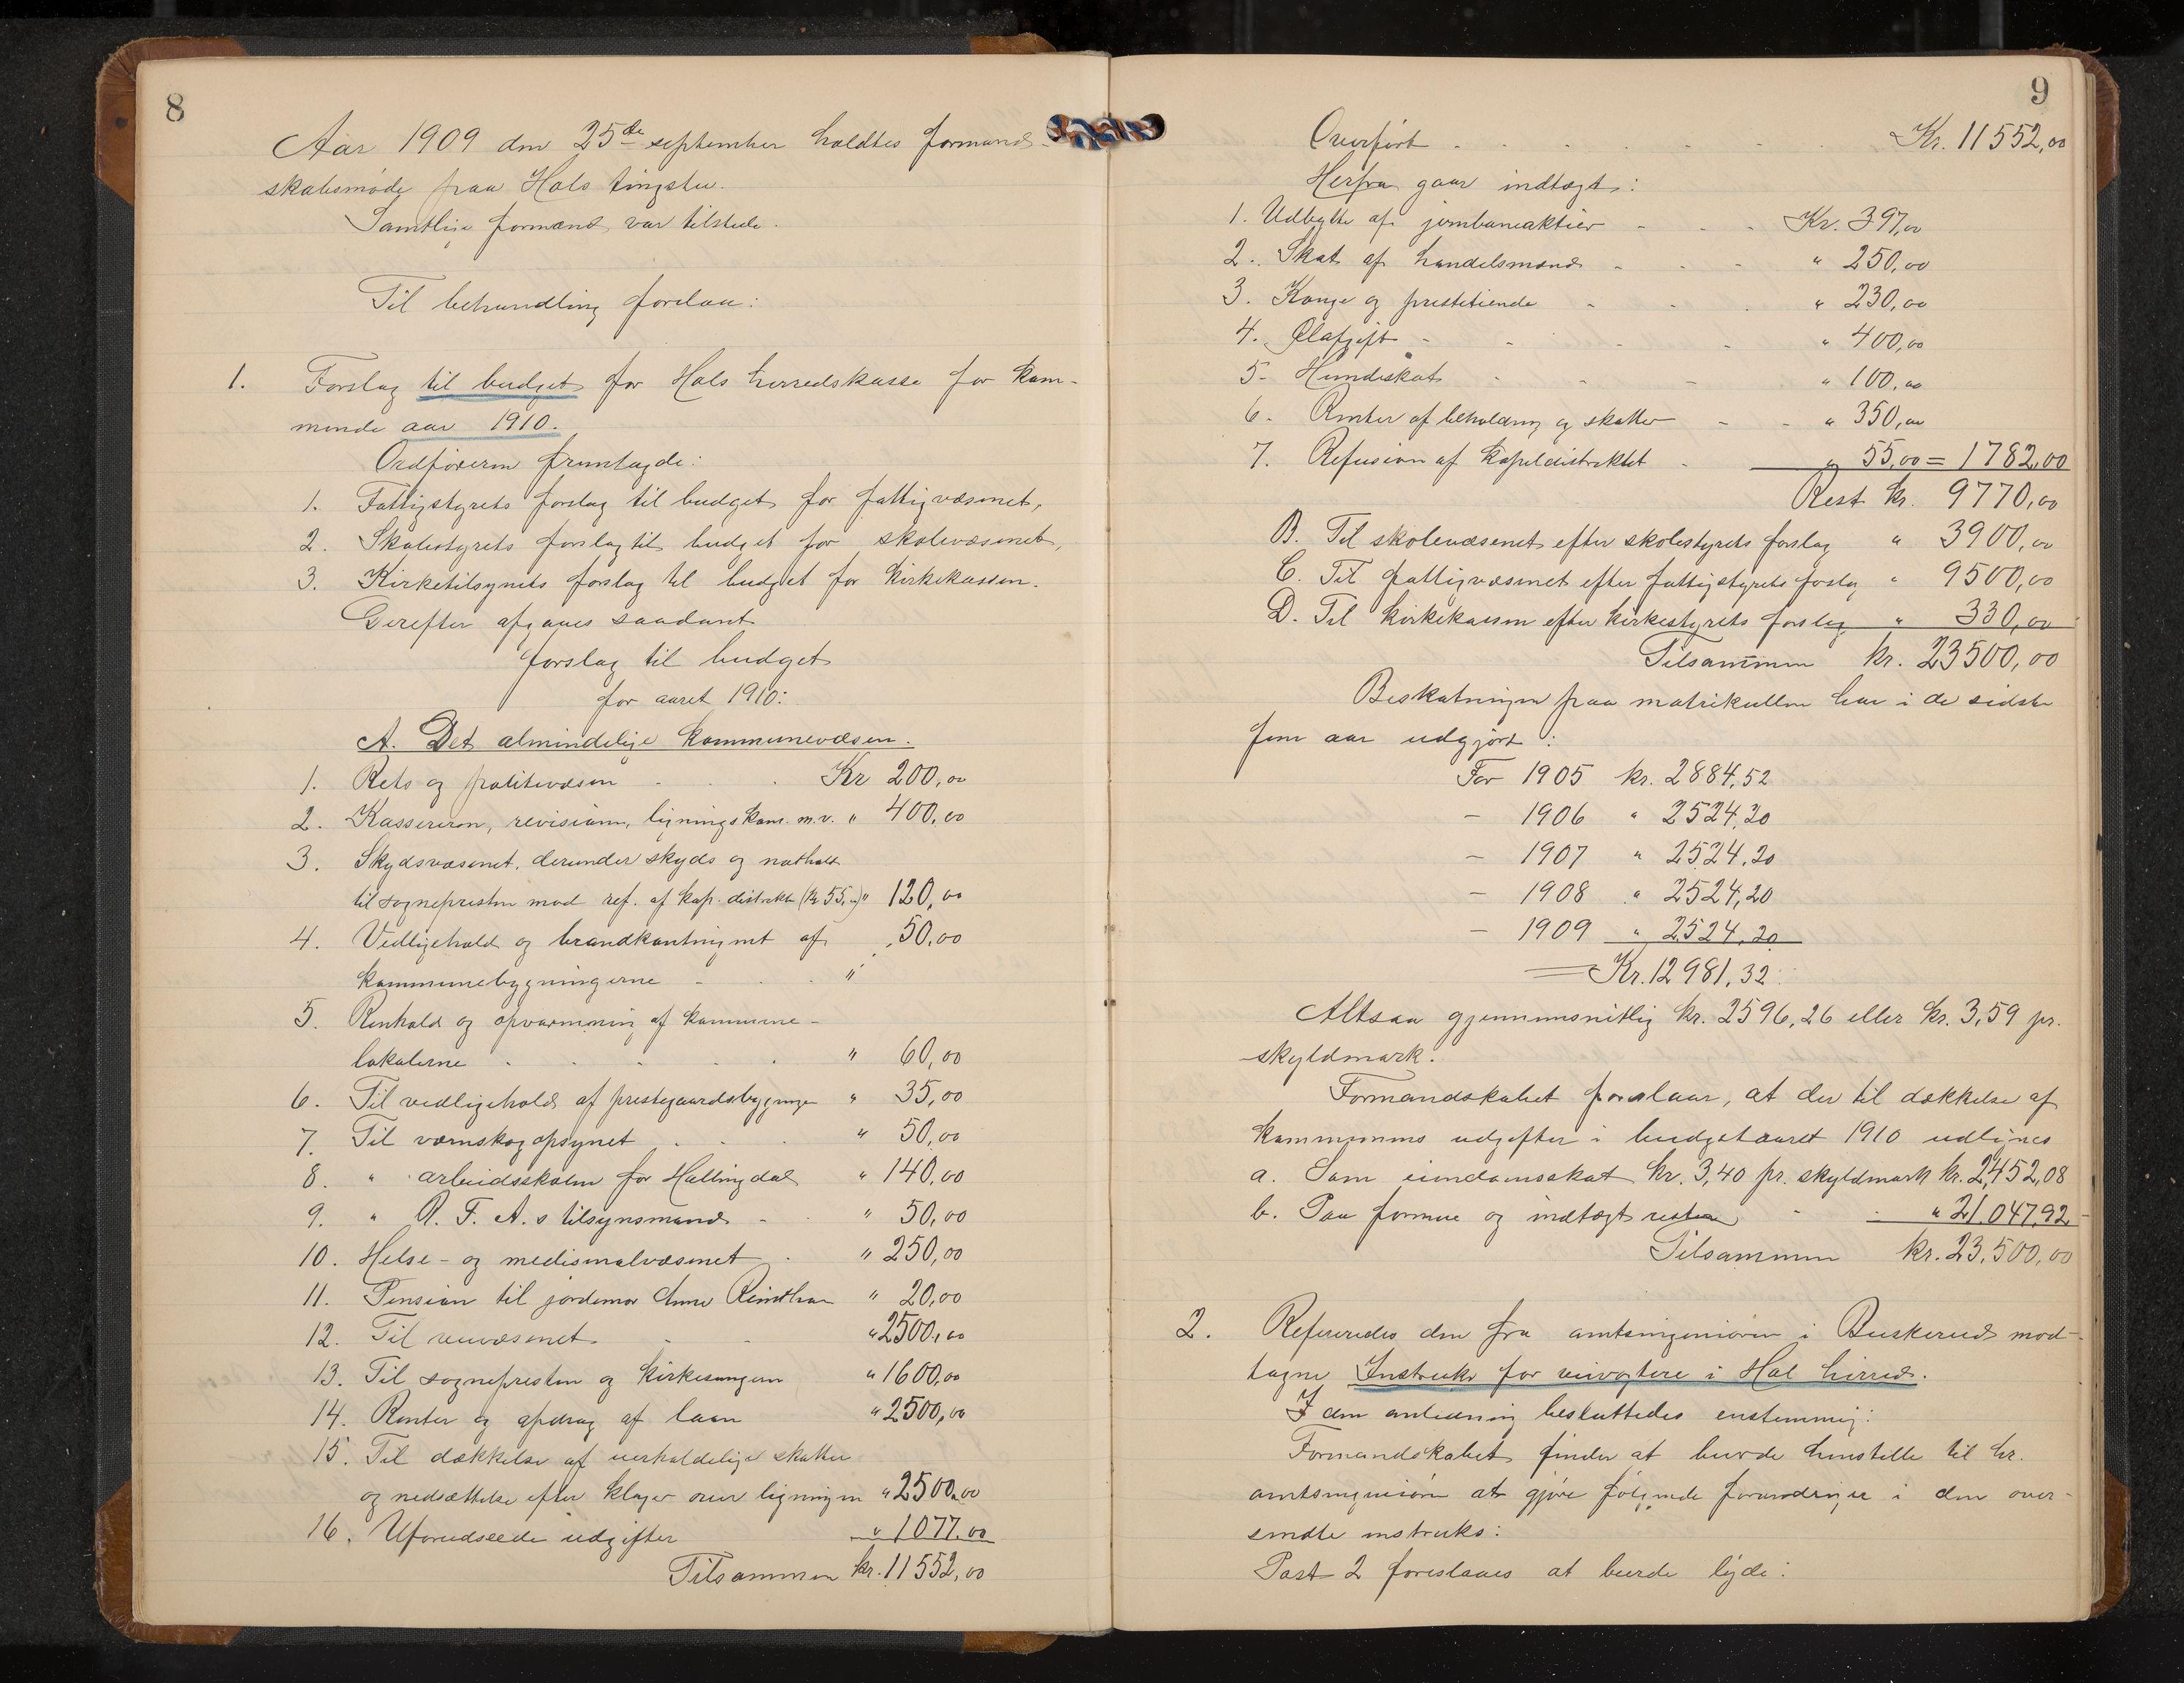 8
Aar 1909 den 25de september holdtes formand-
skabsmøde paa Hols tingstue.
Samtlige formænd var tilstede.
Til behandling forelaa:
1. Forslag til budget for Hols herredskasse for kom-
mende aar 1910.
Ordføreren fremlagde:
1. Fattigstyrets forslag til budget for fattigvæsenet,
2. Skolestyrets forslag til budget for skolevæsenet,
3. Kirketilsynets forslag til budget for kirkekassen.
Derefter afgaves saadant
forslag til budget
for aaret 1910:
A. Det almindelige kommunevæsen.
1. Rets og politivæsen - . . Kr 200,00
2. Kassereren, revisionen, ligningskom. m.v. " 400,00
3. Skydsvæsenet, derunder skyds og nathold
til sognepresten mod ref. af kap. distriktet (kr 55,00) " 120,00
4. Vedligehold og brandkontingent af 50,00
kommunebygningerne - . . "
5. Renhold og opvarmning af kommune-
lokalerne . . . . . " 60,00
6. Til vedligehold af prestegaardsbygninger " 35,00
7. Til vernskogopsynet . . . " 50,00
8. " arbeidsskolen for Hallingdal " 140,00
9. " R. F. A. s tilsynsmænd - . " 50,00
10. Helse- og medisinalvæsenet . " 250,00
11. Pension til jordemor Anne 20,00
12. Til veivæsenet - - " 2500,00
13. Til sognepresten og kirkesangeren " 1600,00
14. Renter og afdrag af laan " 2500,00
15. Til dækkelse af uerholdelige skatter
og nedsættelse efter klager over ligningen " 2500,00
16. Uforudseede udgifter " 1077,00
Tilsammen kr. 11552,00
9
Overført - . . . . . . Kr. 11552,00
Herfra gaar indtægt:
1. Udbytte af jernbaneaktier - . - Kr. 397,00
2. Skat af handelsmænd - - - " 250,00
3. Konge og prestetiende - - . " 230,00
4. Ølafgift - - - - " 400,00
5- Hundeskat - - - " 100,00
6- Renter af beholdning og skatter - - " 350,00
7. Refusion af kapeldistriktet - " 55,00 = 1782,00
Rest kr. 9770,00
B. Til skolevæsenet efter skolestyrets forslag " 3900,00
C. Til fattigvæsenet efter fattigstyrets forslag " 9500,00
D. Til kirkekassen efter kirkestyrets forslag " 330,00
Tilsammen kr. 23500,00
Beskatningen paa matrikullen har i de sidste
fem aar udgjort:
For 1905 kr. 2884,52
- 1906 " 2524,20
- 1907 " 2524,20
- 1908 " 2524,20
- 1909 " 2524,20
= Kr. 12981,32
Altsaa gjennemsnitlig kr. 2596,26 eller kr. 3,59 pr.
skyldmark.
Formandskabet foreslaar, at der til dækkelse af
kommunens udgifter i budgetaaret 1910 udlignes
a. Som eiendomsskat kr. 3,40 pr. skyldmark kr. 2,452,08
b. Paa formue og indtægt resten - . " 21.047,92
Tilsammen kr. 23.500,00
2. Refereredes den fra amtsingeniøren i Buskerud mod-
tagne Instruks for veivogtere i Hol herred.
I den anledning besluttedes enstemmig:
Formandskabet finder at burde henstille til hr.
amtsingeniøren at gjøre følgende forandringer i den over-
sendte instruks:
Post 2 foreslaaes at burde lyde: